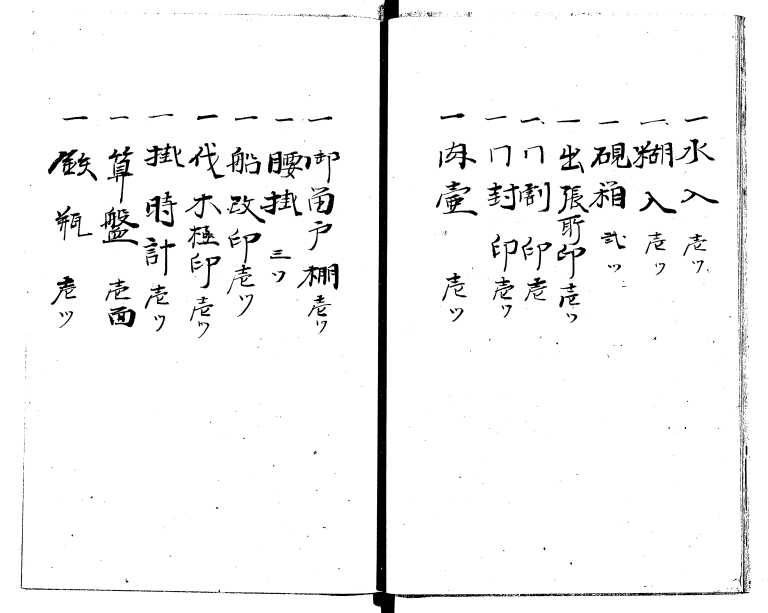 一 水入 壱ツ
一 糊入 壱ツ
一 硯箱 弐ツ
一 出張所印 壱ツ
一 門割印 壱
一 門封印 壱ツ
一 肉壷 壱ツ
一 御留戸棚 壱ツ
一 腰掛 三ツ
一 船改印 壱ツ
一 代木極印 壱ツ
一 掛時計 壱ツ
一 算盤 壱面
一 鉄瓶 壱ツ